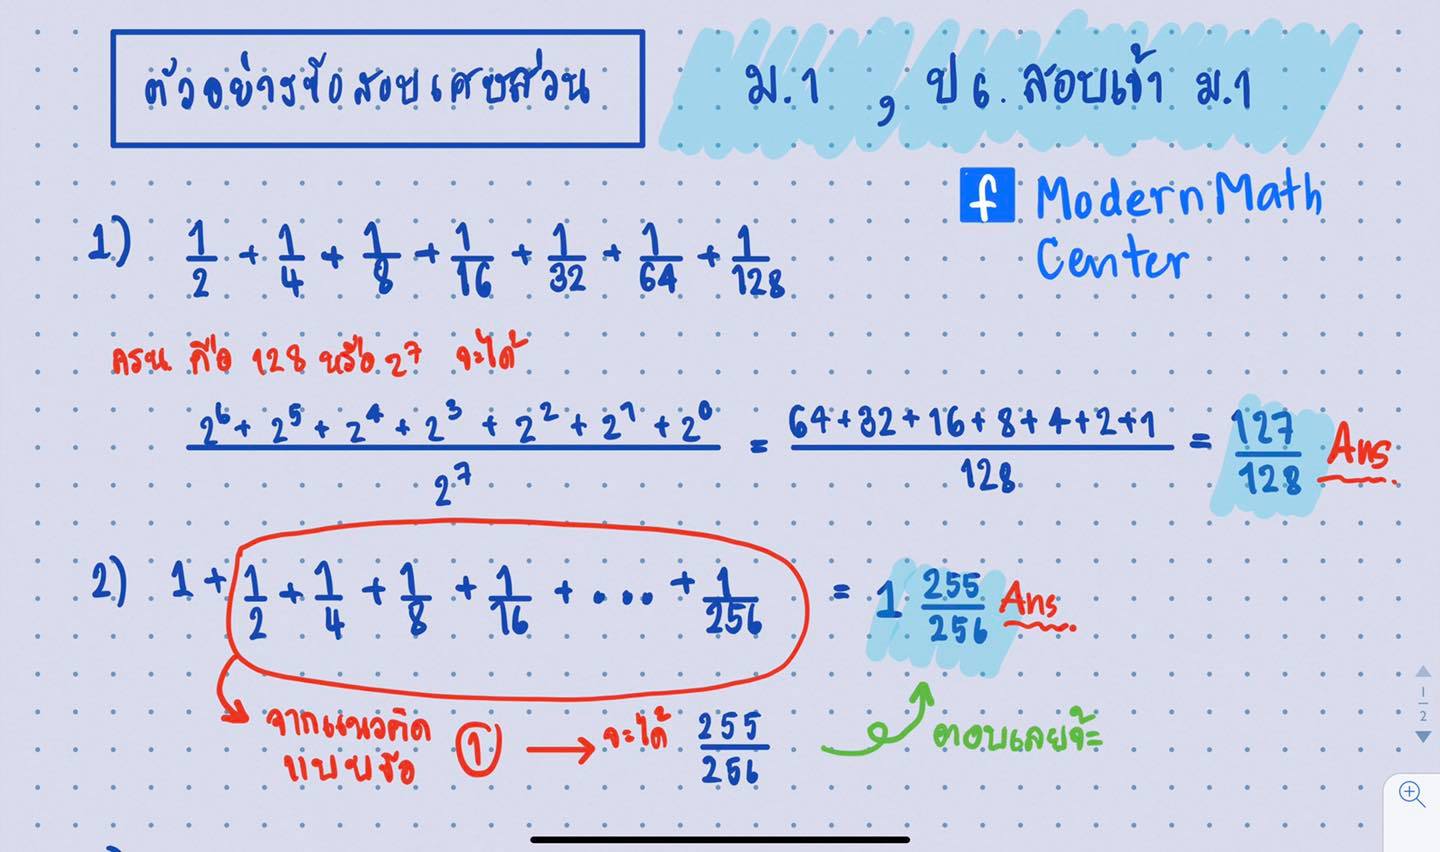 ตัวอย่างข้อสอบเศษส่วน
ม.1 , ป 6. สอบเข้า ม.1
f Modern Math
Center
1) 1/2 + 1/4 + 1/8 + 1/16 + 1/32 + 1/64 + 1/128
ครน คือ 128 หรือ 2⁷ จะได้
2⁶ + 2⁵ + 2⁴ + 2³ + 2² + 2¹ + 2⁰ / 2⁷ = 64+32+16+8+4+2+1 / 128 = 127/128 Ans
2) 1 + 1/2 + 1/4 + 1/8 + 1/16 + ... + 1/256 = 1 255/256 Ans
จากแนวคิด
แบบข้อ ① → จะได้ 255/256
ตอบเลยจ้ะ
1/2